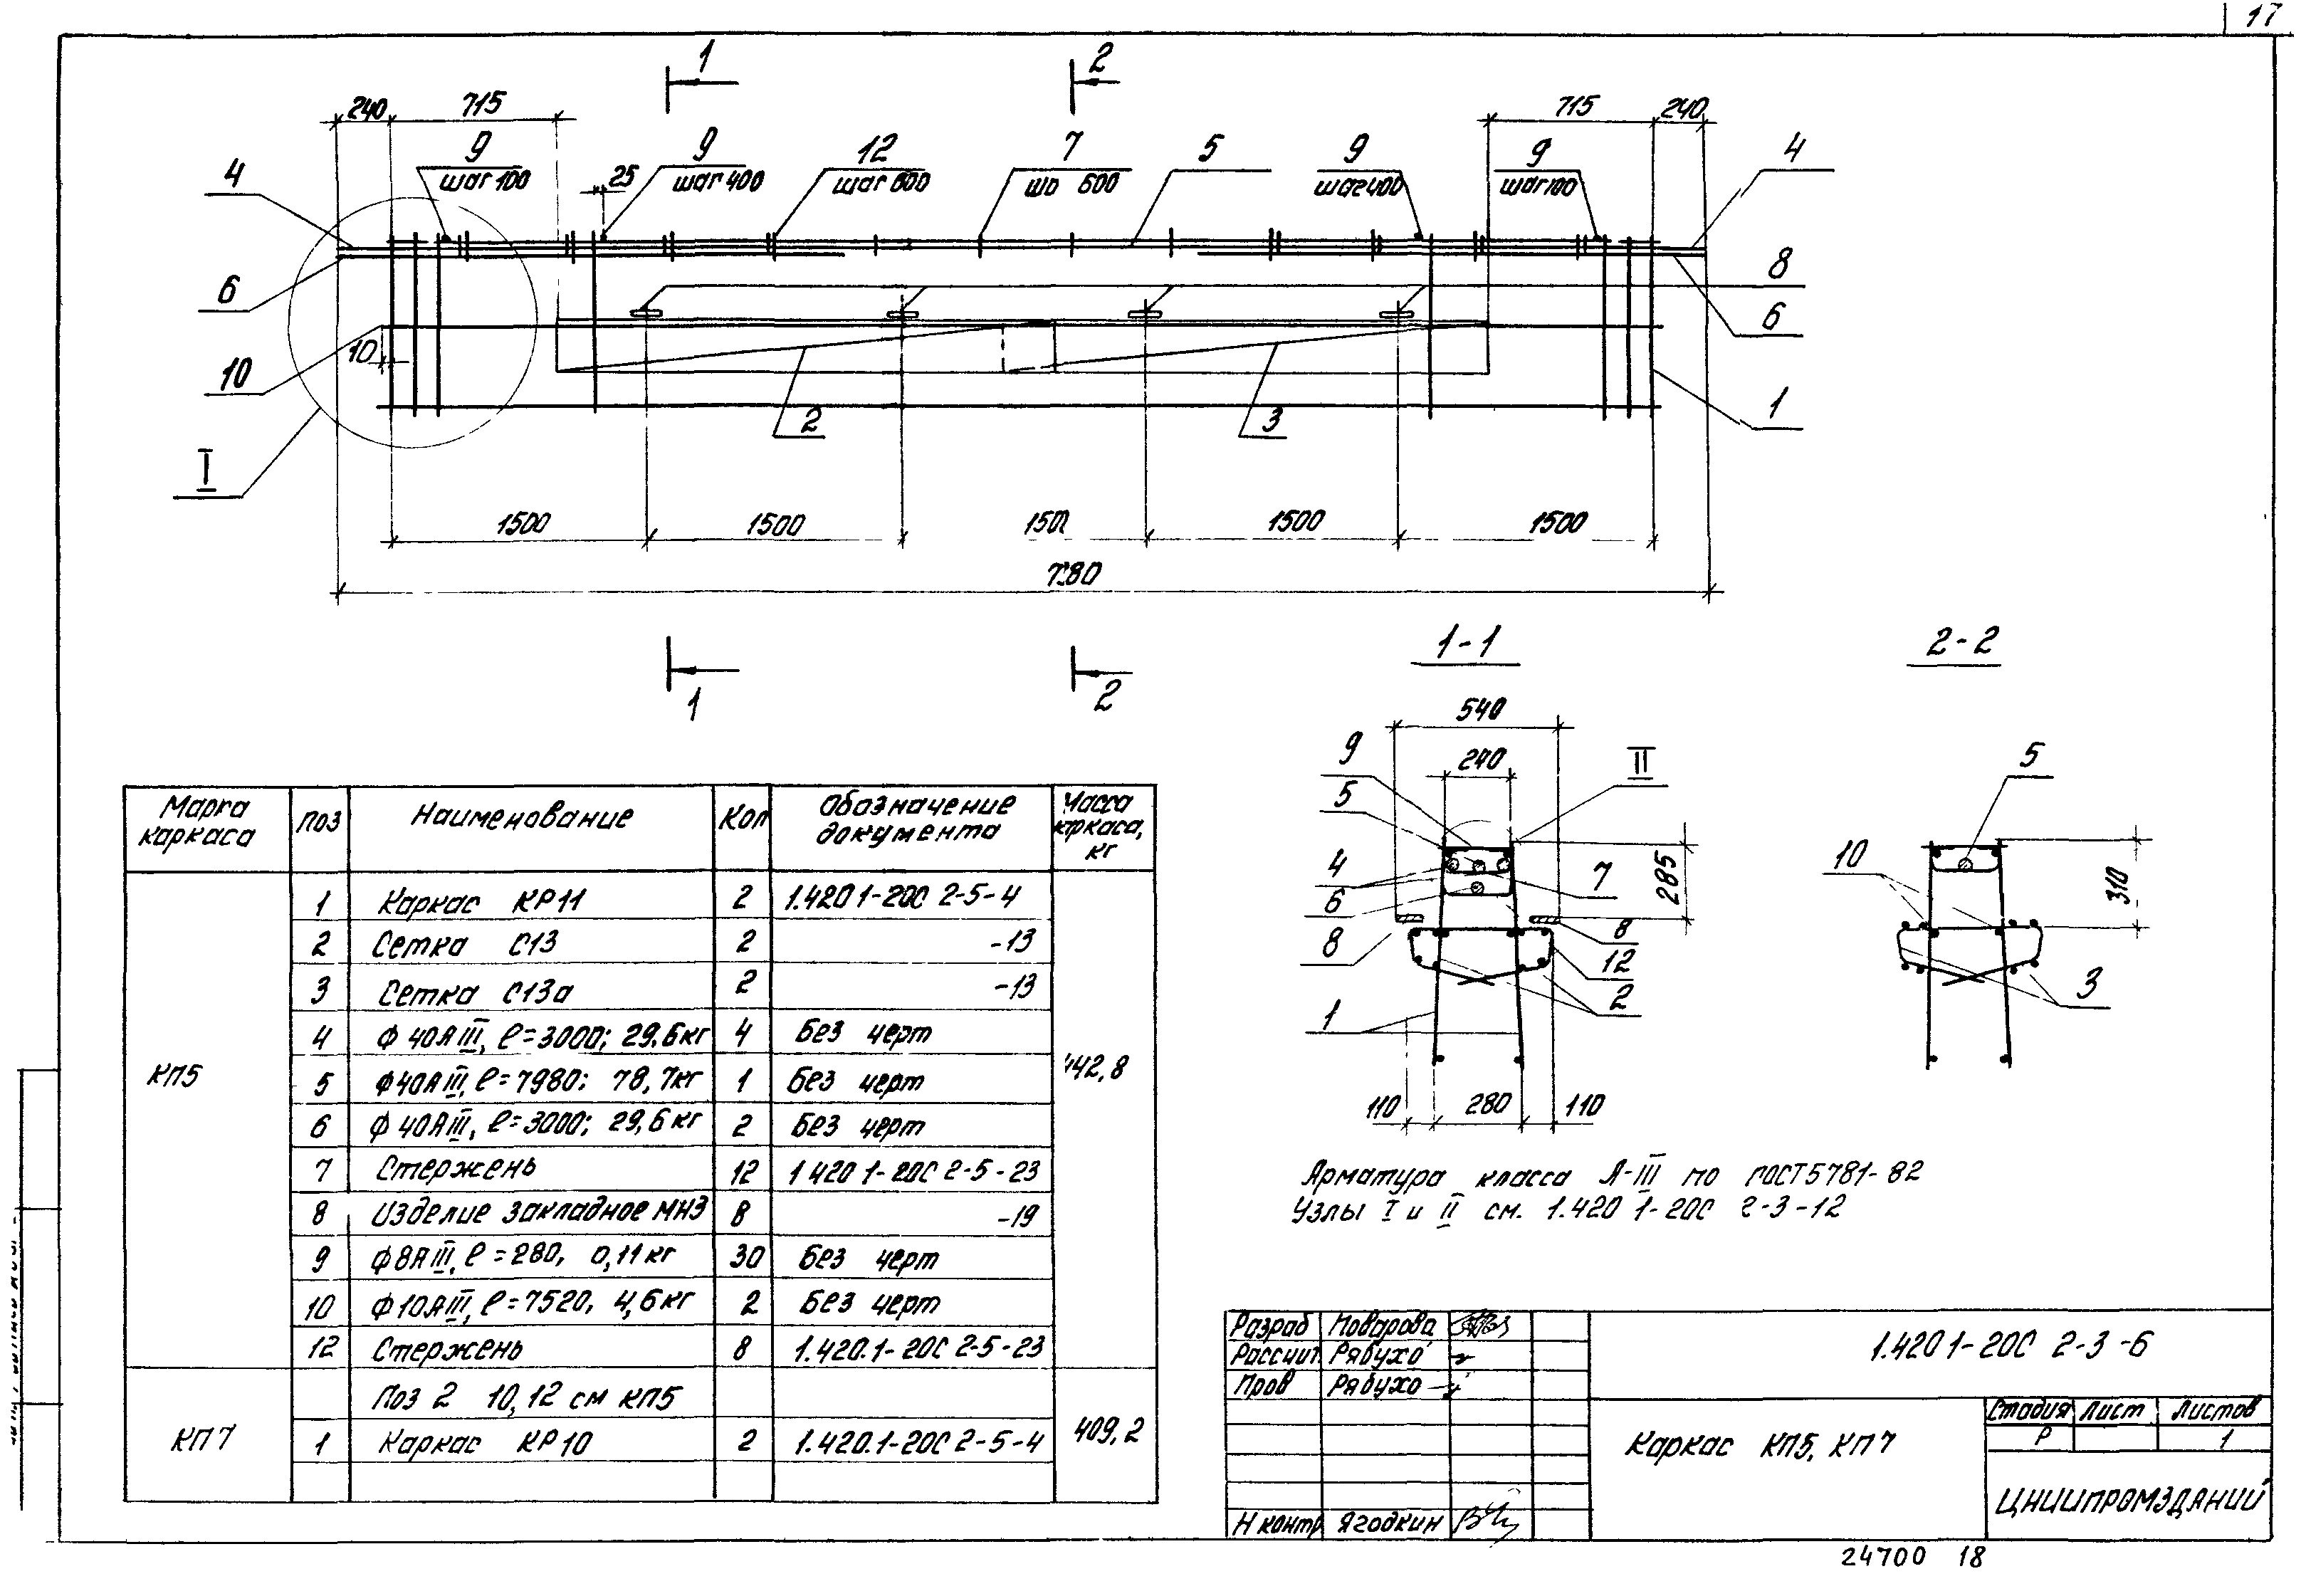 17
1
2
240
715
715
240
4
9
шаг 100
25
9
шаг 400
12
шаг 600
7
600
5
9
шаг 400
9
шаг 100
4
6
8
6
10
10
2
3
1
I
1500
1500
1500
1500
1
2
1-1
2-2
540
240
9
II
5
4
6
7
285
8
8
12
2
1
110
280
110
5
10
310
3
Марка каркаса
Поз
Наименование
Кол
Обозначение документа
кг
КП5
1 Каркас КР11 2 1.420 1-20С 2-5-4
2 Сетка С13 2 -13
3 Сетка С13а 2 -13
4 ф 40АIII, ℓ=3000; 29,6кг 4 Без черт
5 ф40АIII, ℓ=7980; 78,7кг 1 Без черт
6 ф 40АIII, ℓ=3000; 29,6кг 2 Без черт
7 Стержень 12 1 420 1-20С 2-5-23
8 Изделие закладное МН3 8 -19
9 ф8АIII, ℓ=280, 0,11кг 30 Без черт
10 ф10АIII, ℓ=7520, 4,6кг 2 Без черт
12 Стержень 8 1.420.1-20С 2-5-23
442,8
КП7
Поз 2 10,12 см КП5
1 Каркас КР10 2 1.420.1-20С 2-5-4
409,2
Арматура класса А-III по ГОСТ5781-82
Узлы I и II см. 1.420 1-20С 2-3-12
Разраб
Рассчит. Рябухо
Пров Рябухо
Н контр Ягодкин
1.420 1-20С 2-3-6
Каркас КП5, КП7
Стадия Лист Листов
Р 1
ЦНИИПРОМЗДАНИЙ
24700 18